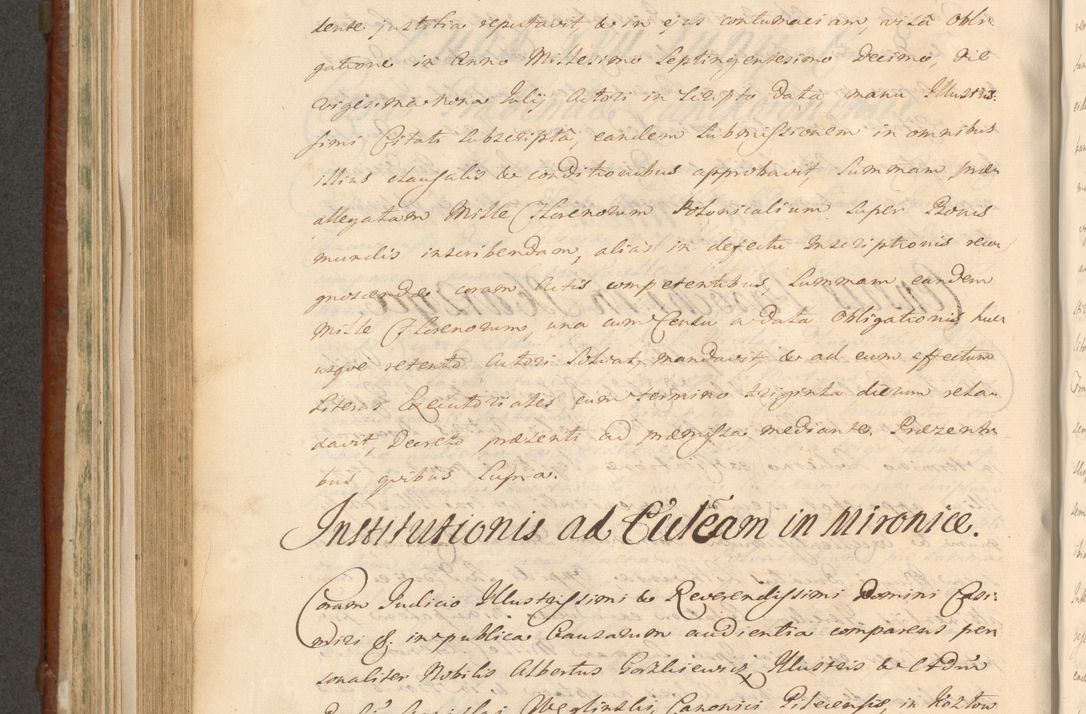 dente justitia reputavit & in ejus contumaciam, visâ Obli-
gatione in Anno Millesimo Septingentesimo Decimo, die
vigesima nona Julij Actori in Scripto data manu Illustris-
simi Citati subscriptâ, eandem submissionem in omnibus
illius clausulis & conditionibus approbavit, Summam præ-
allegatam Mille Florenorum Polonicalium super Bonis
mundis inscribendam, alias in defectu Inscriptionis reco-
gnoscendæ coram Actis competentibus, Summam eandem
Mille Florenorum, una cum Censu a data Obligationis huc
usque retento Actori Solvat, mandavit, & ad eum effectum
Literas Executoriales cum termino triginta dierum rela-
xavit, Decreto præsenti ad præmissa mediante. Præzenti-
bus quibus Supra.
Institutionis ad Cūleām in Mironice.
Coram Judicio Illustrissimi & Reverendissimi Domini
& in publica Causarum audientia comparens per
sonaliter Nobilis Albertus Illustris & Adm
Wegliński, Canonici in